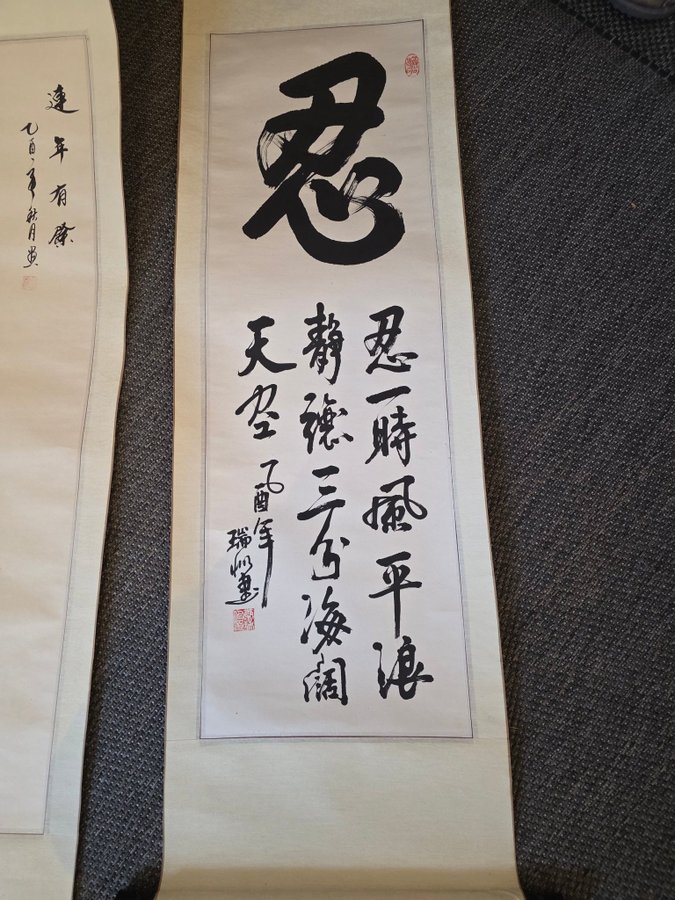 忍
忍一時風平浪
靜讓三分海闊
天空
乙酉年
瑞
連年有餘
乙酉年秋月